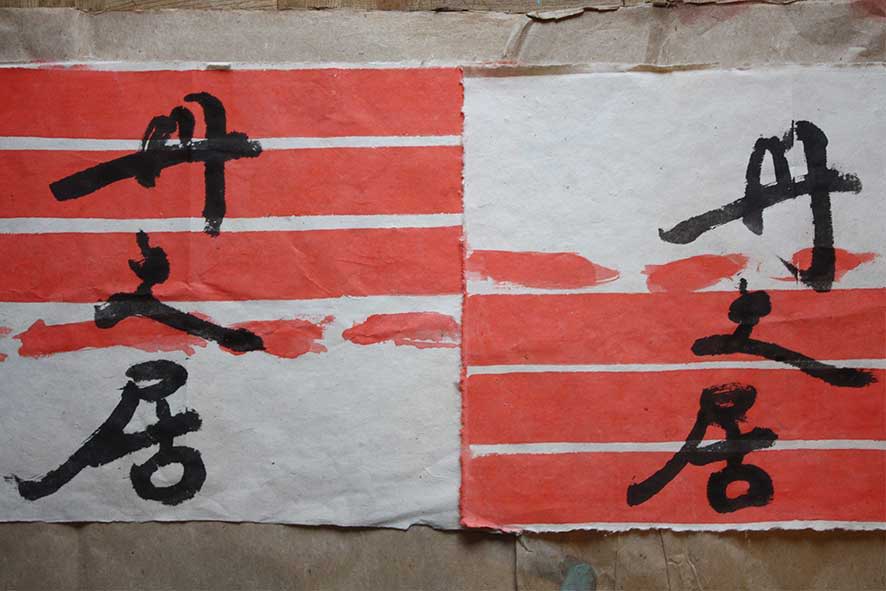 丹之居
丹之居